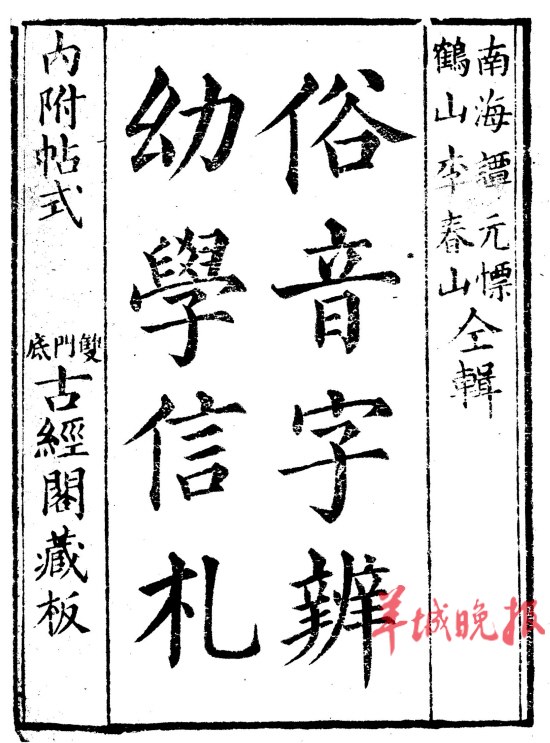 南海譚元慓
鶴山李春山
仝輯
俗音字辨
幼學信札
內附帖式
雙門底
古經閣藏板
羊城晚报